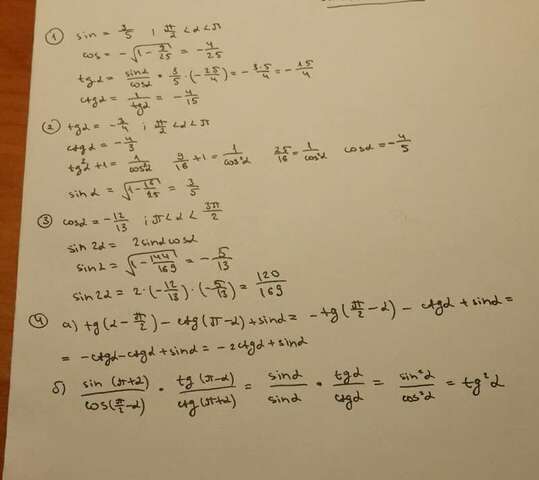 ① sin = 3/5 ; π/2 < α < π
cos = -√(1 - 9/25) = -4/25
tgα = sinα/cosα = 3/5 · (-25/4) = -3·5/4 = -15/4
ctgα = 1/tgα = -4/15
② tgα = -3/4 ; π/2 < α < π
ctgα = -4/3
tg²α + 1 = 1/cos²α 9/16 + 1 = 1/cos²α 25/16 = 1/cos²α cosα = -4/5
sin α = √(1 - 16/25) = 3/5
③ cosα = -12/13 ; π < α < 3π/2
sin 2α = 2sinα cosα
sin α = √(1 - 144/169) = -5/13
sin 2α = 2·(-12/13)·(-5/13) = 120/169
④ а) tg(α - π/2) - ctg(π - α) + sinα = -tg(π/2 - α) - ctgα + sinα =
= -ctgα - ctgα + sinα = -2ctgα + sinα
б) sin(π+α)/cos(π/2 - α) · tg(π-α)/ctg(π+α) = sinα/sinα · tgα/ctgα = sin²α/cos²α = tg²α